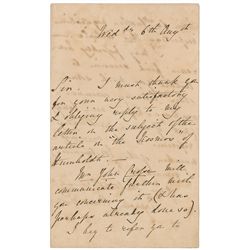 Wed dy 6th Augst
Sir I must thank you
for your very satisfactory
& obliging reply to my
letter on the subject of the
article on "the Kosmos" of
Humboldt. —
Mr. John Crosse will
communicate further with
you concerning it (& has
perhaps already done so).
I beg to refer you to